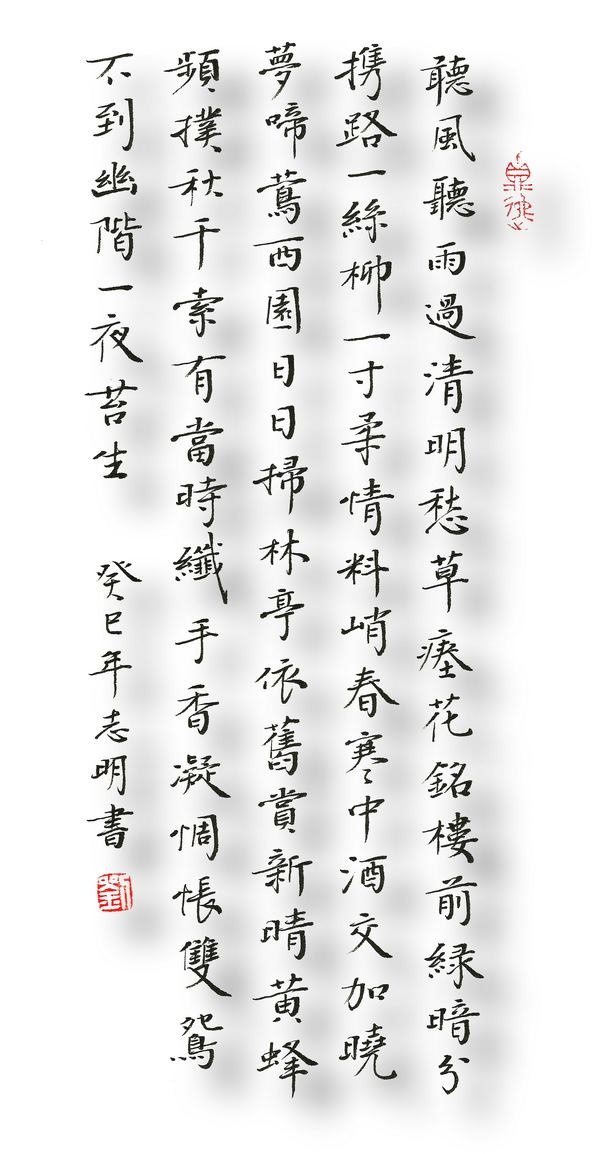 聽風聽雨過清明愁草瘞花銘樓前緑暗分
携路一絲柳一寸柔情料峭春寒中酒交加曉
夢啼鶯西園日日掃林亭依舊賞新晴黄蜂
頻撲秋千索有當時纖手香凝惆悵雙鴛
不到幽階一夜苔生 癸巳年志明書
劉